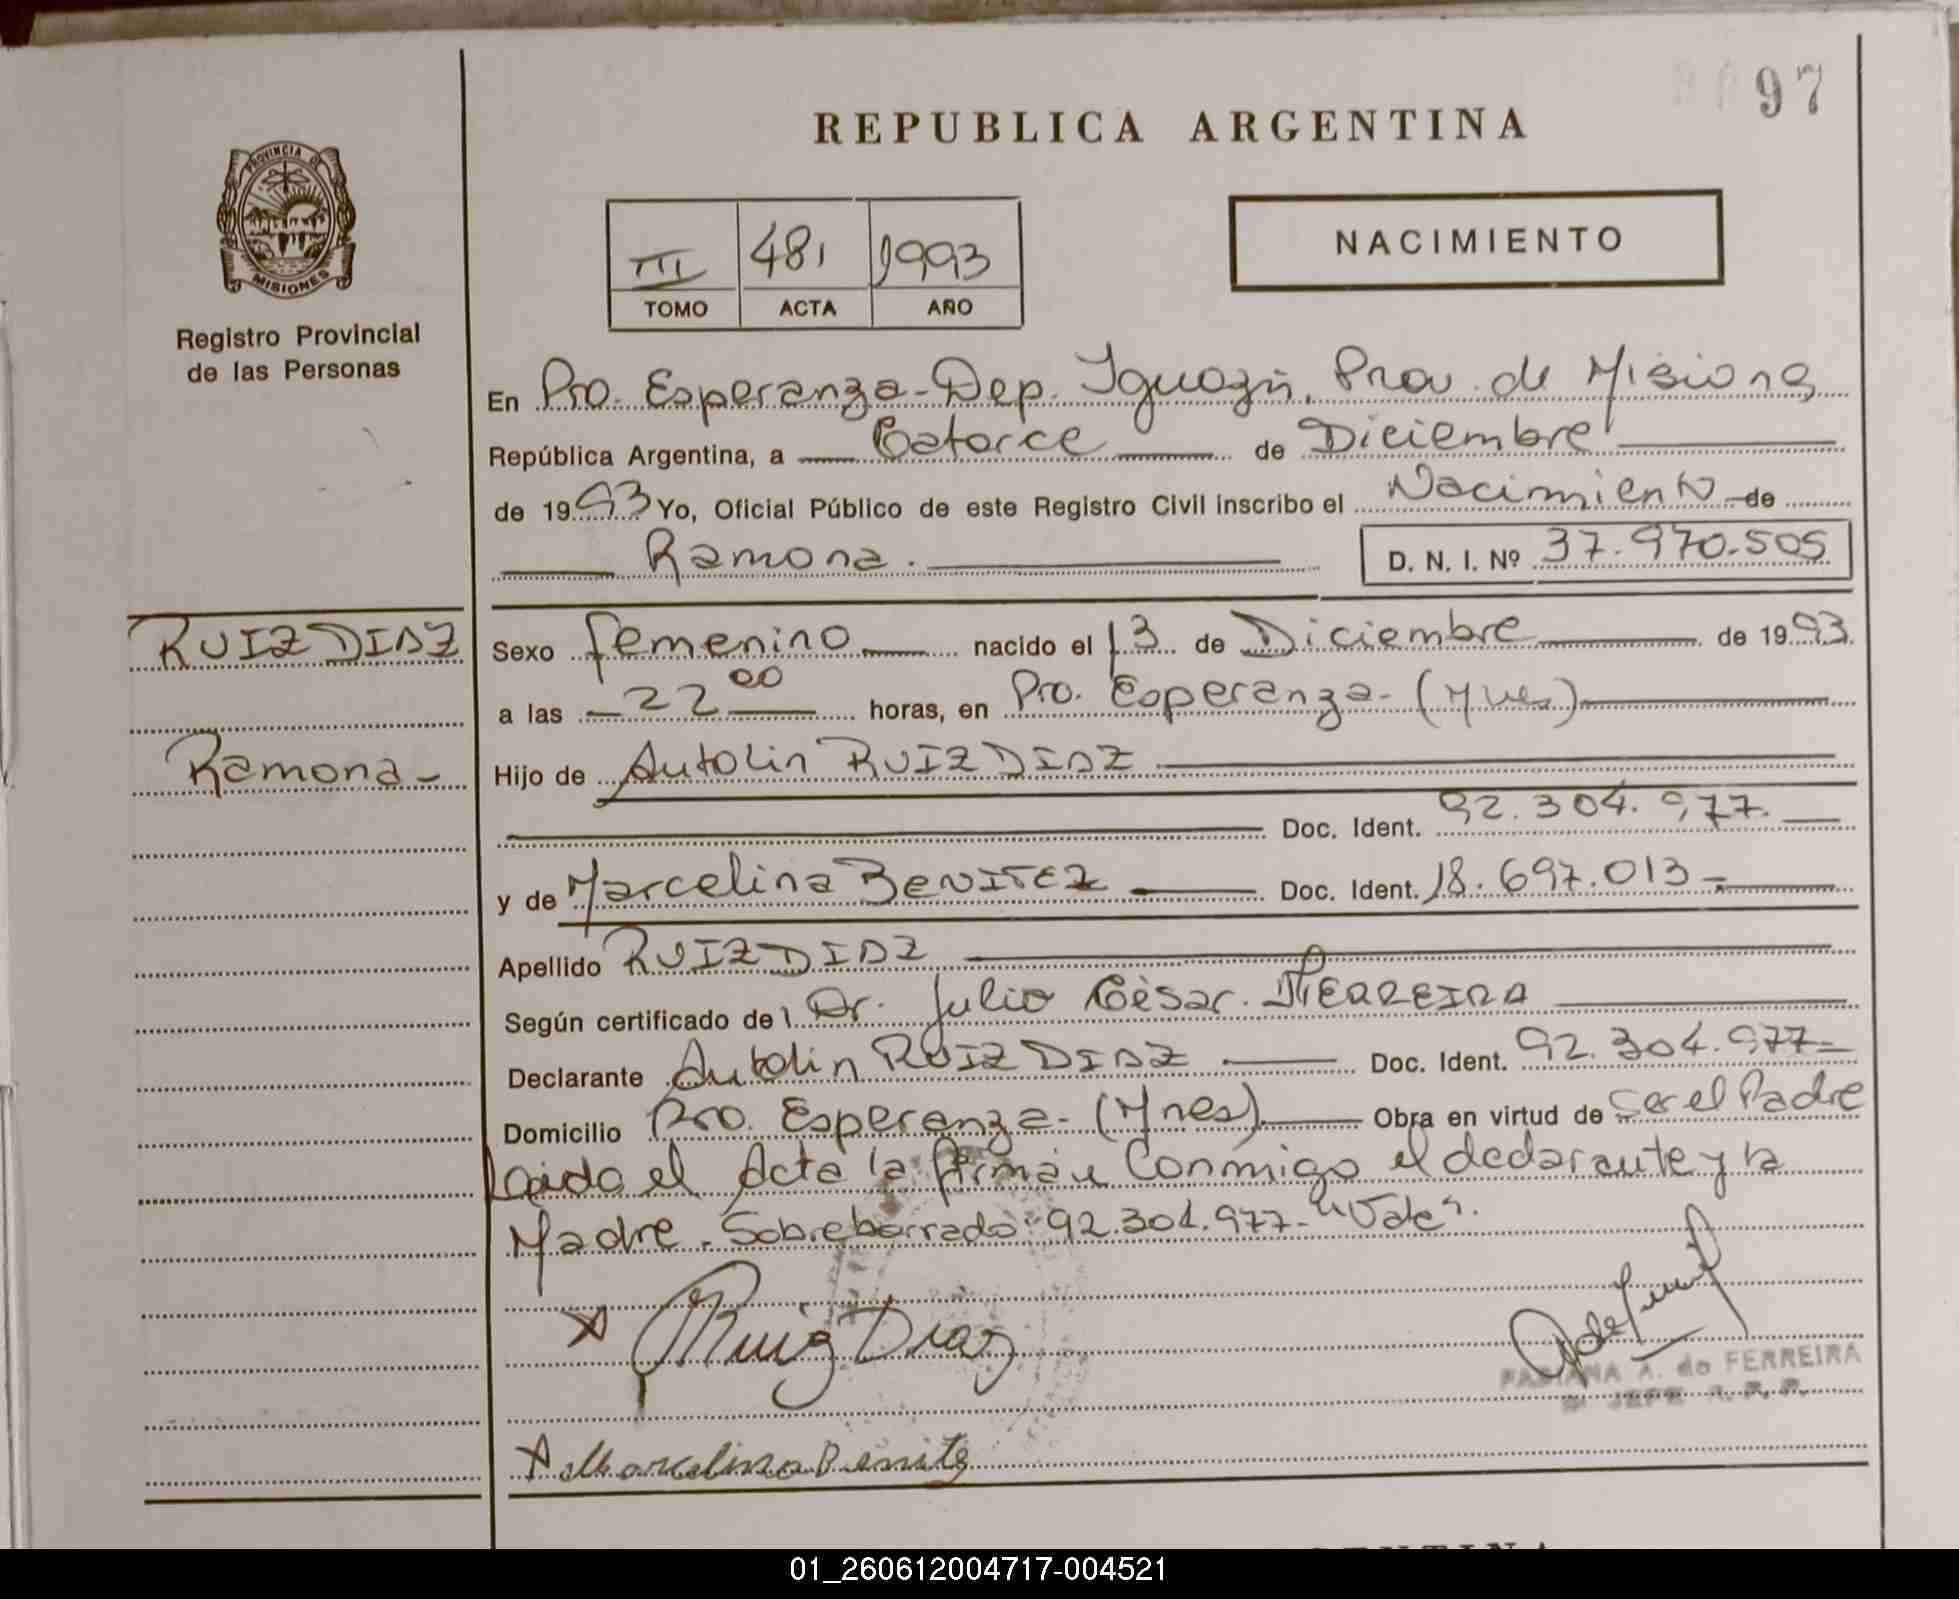 97
REPUBLICA ARGENTINA
PROVINCIA DE
MISIONES
Registro Provincial
de las Personas
III 481 1993
TOMO ACTA AÑO
NACIMIENTO
En Pto. Esperanza - Dep. Iguazú, Prov. de Misiones
República Argentina, a Catorce de Diciembre
de 1993 Yo, Oficial Público de este Registro Civil inscribo el Nacimiento de
Ramona. D. N. I. Nº 37.970.505
RUIZ DIAZ
Ramona -
Sexo femenino nacido el 13 de Diciembre de 1993
a las 22 00 horas, en Pto. Esperanza - (Mnes)
Hijo de Autolin RUIZ DIAZ
Doc. Ident. 92.304.977.
y de Marcelina BENITEZ Doc. Ident. 18.697.013 -
Apellido RUIZ DIAZ
Según certificado del Dr. Julio Cèsar. FERREIRA
Declarante Autolin RUIZ DIAZ Doc. Ident. 92.304.977-
Domicilio Pto. Esperanza - (Mnes). Obra en virtud de Ser el Padre
Leida el Acta la firmàn Conmigo el declarante y la
Madre. Sobreborrado: 92.304.977 - "Vale".
X Ruiz Diaz
FABIANA A. de FERREIRA
JEFE R. P. P.
X Marcelina Benitz
01_260612004717-004521